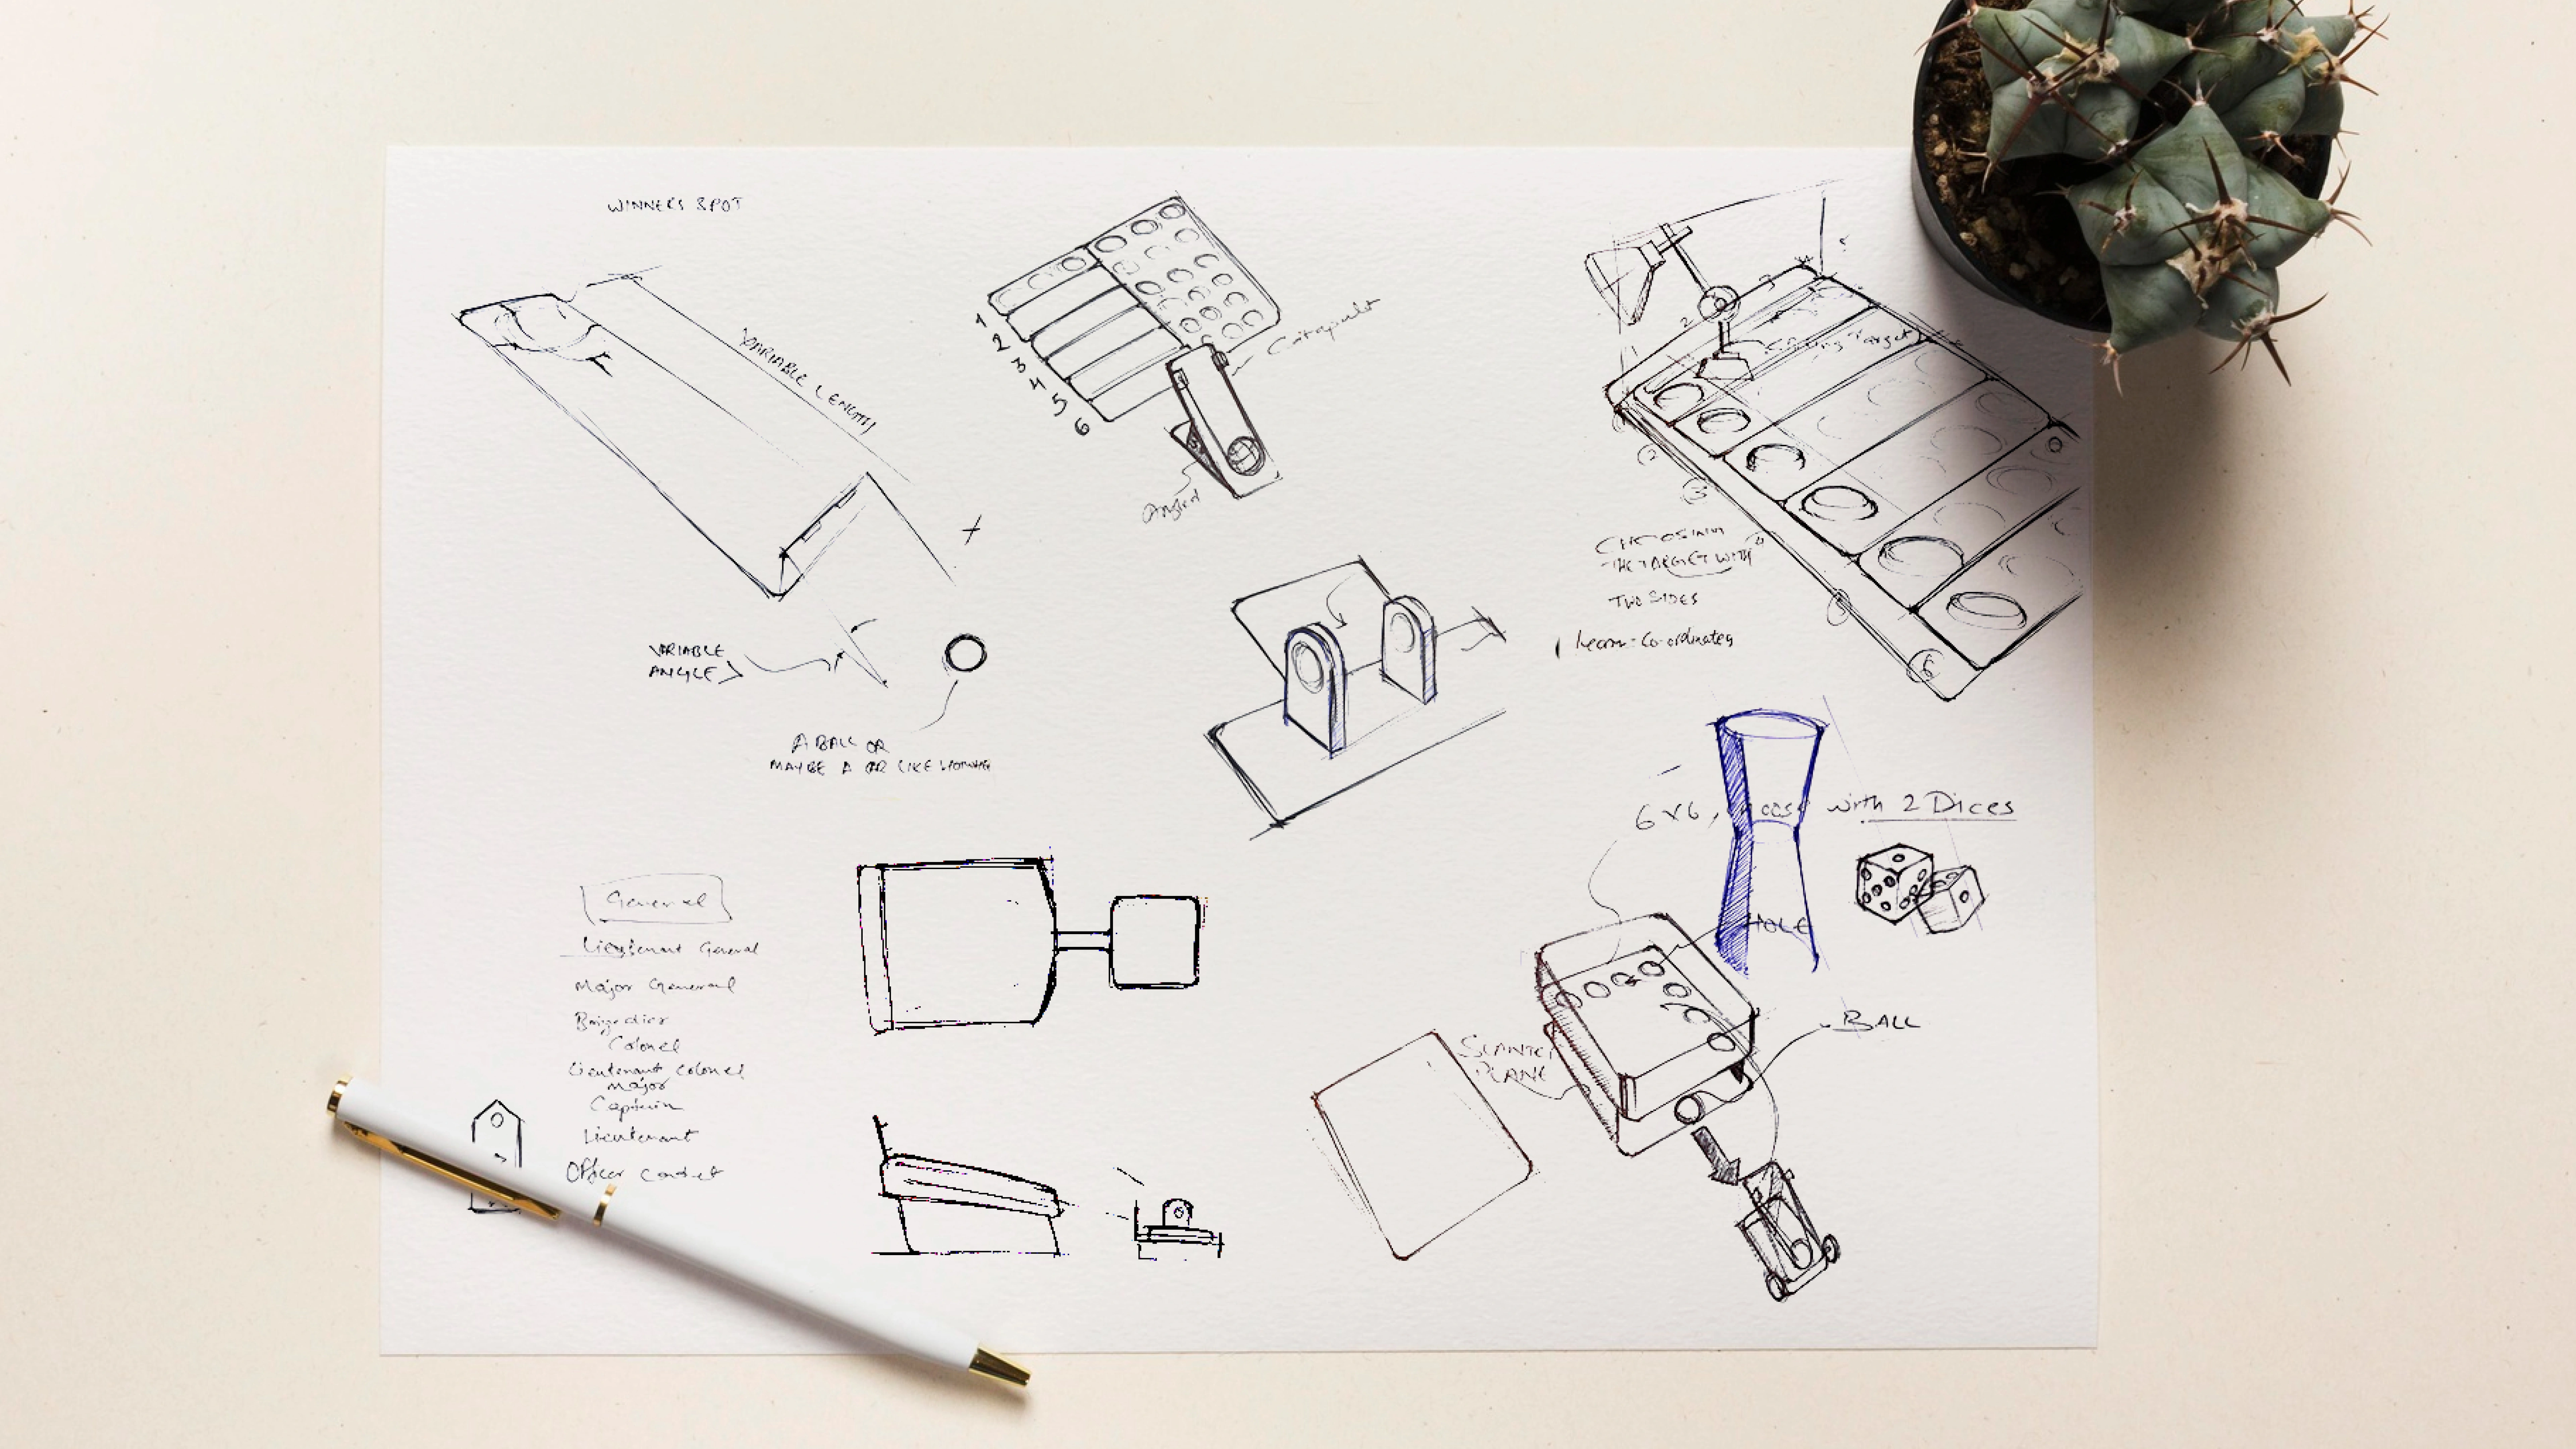 WINNERS SPOT
VARIABLE LENGTH
1
2
3
4
5
6
Catapult
Angled
VARIABLE
ANGLE
A BALL OR
MAYBE A CAR LIKE
Target
CHOOSING
THE TARGET WITH
TWO SIDES
learn - Co-ordinates
6x6, with 2 Dices
HOLE
BALL
SLANTED
PLANE
General
Lieutenant General
Major General
Brigadier
Colonel
Lieutenant Colonel
Major
Captain
Lieutenant
Officer Cadet